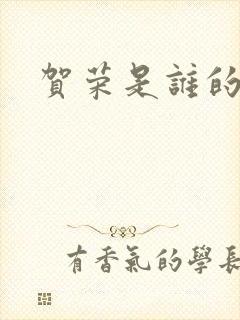 賀荣是誰的
有香氣的學長